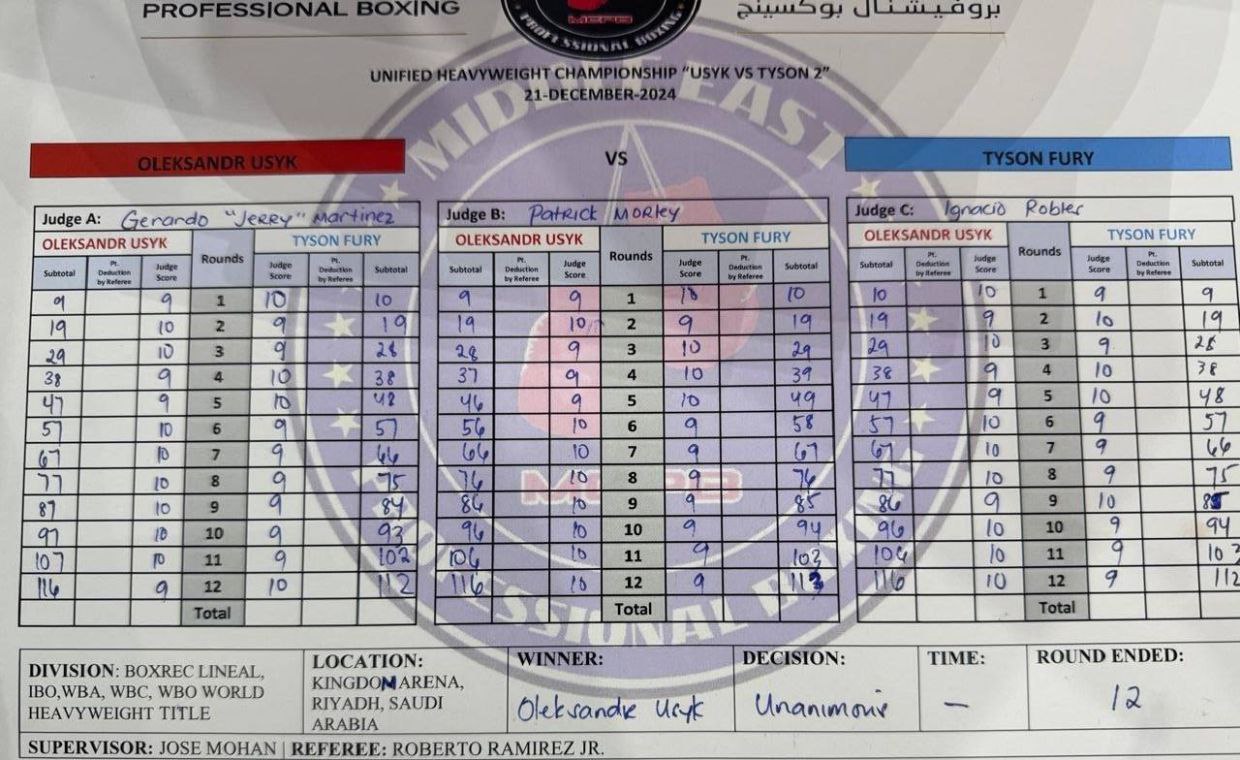 PROFESSIONAL BOXING
بروفيشنال بوكسينج
MEPB
PROFESSIONAL BOXING
UNIFIED HEAVYWEIGHT CHAMPIONSHIP "USYK VS TYSON 2"
21-DECEMBER-2024
MIDDLE EAST
MEPB
PROFESSIONAL BOXING
OLEKSANDR USYK VS TYSON FURY
Judge A: Gerardo "Jerry" Martinez Judge B: Patrick Morley Judge C: Ignacio Robles
OLEKSANDR USYK Rounds TYSON FURY OLEKSANDR USYK Rounds TYSON FURY OLEKSANDR USYK Rounds TYSON FURY
Subtotal Pt. Deduction by Referee Judge Score Judge Score Pt. Deduction by Referee Subtotal Subtotal Pt. Deduction by Referee Judge Score Judge Score Pt. Deduction by Referee Subtotal Subtotal Pt. Deduction by Referee Judge Score Judge Score Pt. Deduction by Referee Subtotal
9 9 1 10 10 9 9 1 10 10 10 10 1 9 9
19 10 2 9 19 19 10 2 9 19 19 9 2 10 19
29 10 3 9 28 28 9 3 10 29 29 10 3 9 28
38 9 4 10 38 37 9 4 10 39 38 9 4 10 38
47 9 5 10 48 46 9 5 10 49 47 9 5 10 48
57 10 6 9 57 56 10 6 9 58 57 10 6 9 57
67 10 7 9 66 66 10 7 9 67 67 10 7 9 66
77 10 8 9 75 76 10 8 9 76 77 10 8 9 75
87 10 9 9 84 86 10 9 9 85 86 9 9 10 85
97 10 10 9 93 96 10 10 9 94 96 10 10 9 94
107 10 11 9 102 106 10 11 9 103 106 10 11 9 103
116 9 12 10 112 116 10 12 9 113 116 10 12 9 112
Total Total Total
DIVISION: BOXREC LINEAL, IBO,WBA, WBC, WBO WORLD HEAVYWEIGHT TITLE
LOCATION: KINGDOM ARENA, RIYADH, SAUDI ARABIA
WINNER: Oleksandr Usyk
DECISION: Unanimous
TIME: —
ROUND ENDED: 12
SUPERVISOR: JOSE MOHAN | REFEREE: ROBERTO RAMIREZ JR.